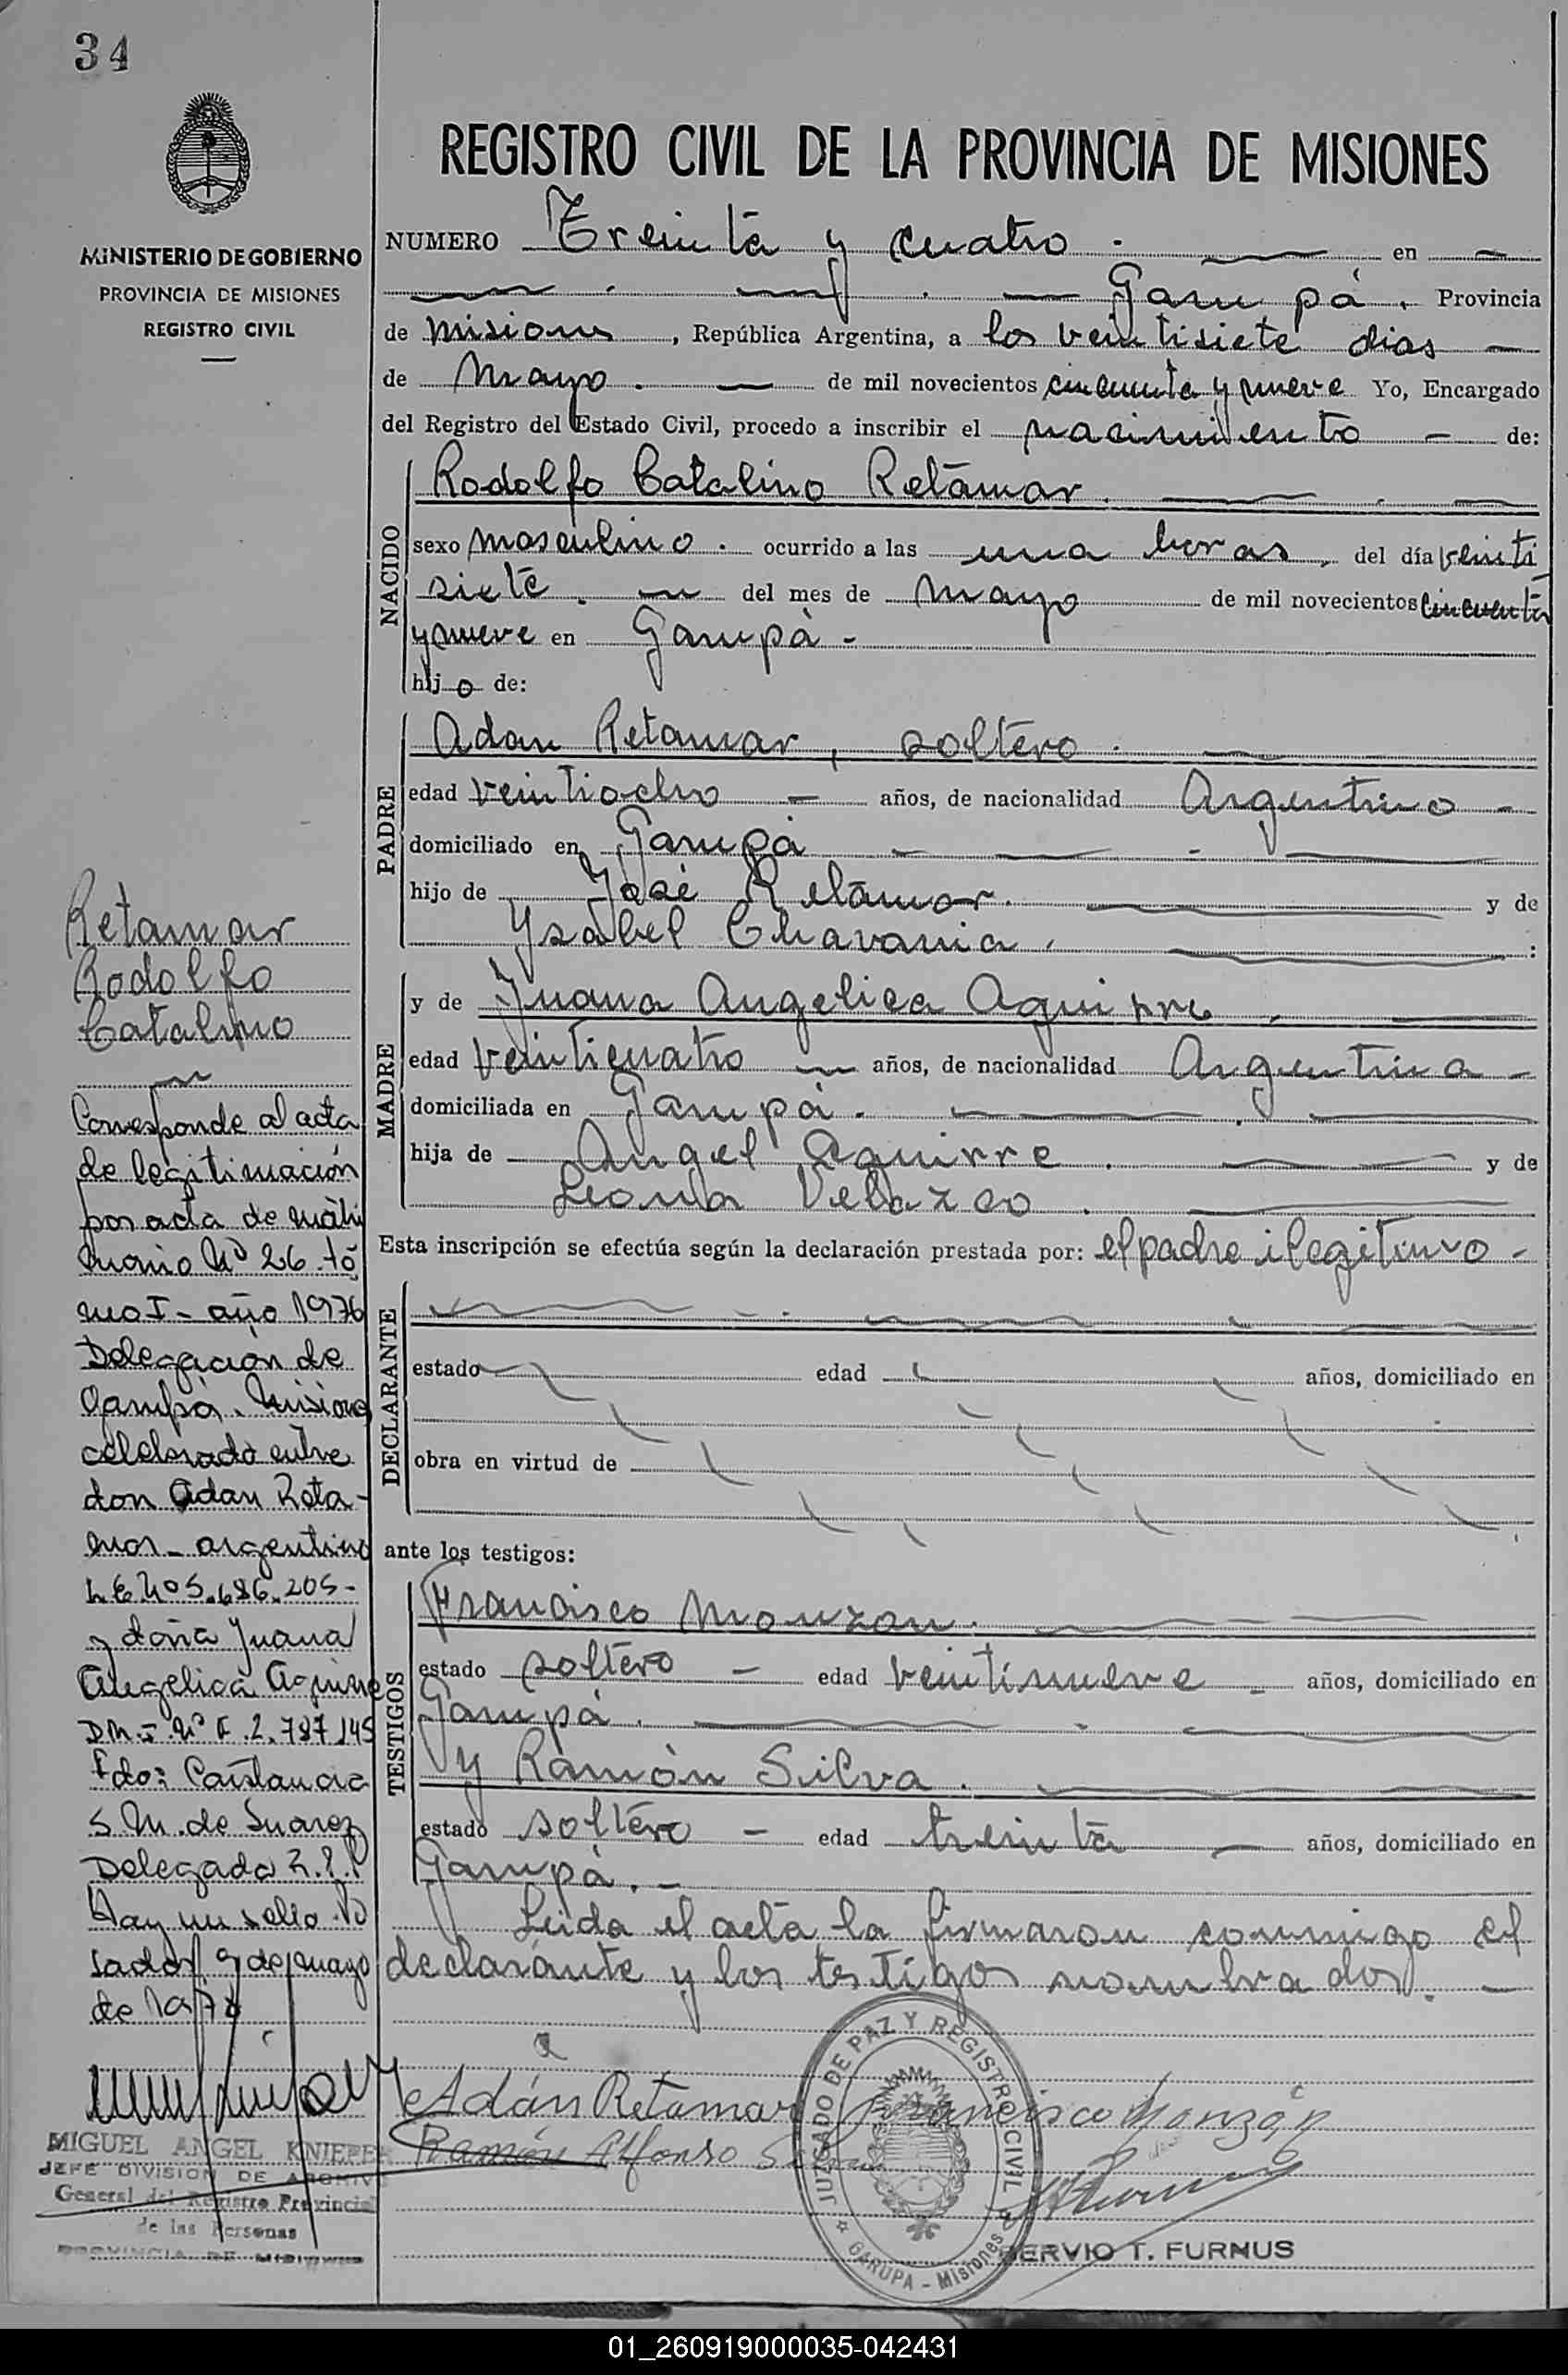 34
MINISTERIO DE GOBIERNO
PROVINCIA DE MISIONES
REGISTRO CIVIL
Retamar
Rodolfo
Catalino
Corresponde al acta
de legitimación
por acta de matri
monio Nº 26. tó
mo I - año 1976
Delegación de
Garupá. Misiones
celebrado entre
don Adan Reta-
mar - argentino
L E Nº 5.686.205-
y doña Juana
Angelica Aguirre
D N I Nº F. 2.787.145
Fdo: Constancia
S M. de Suarez
Delegada R.P.P
Hay un sello. Po
sadas 9 de mayo
de 1978
MIGUEL ANGEL KNIEPER
JEFE DIVISION DE ARCHIVO
General del Registro Provincial
de las Personas
PROVINCIA DE MISIONES
REGISTRO CIVIL DE LA PROVINCIA DE MISIONES
NUMERO Treinta y cuatro . en
Garupá, Provincia
de Misiones, República Argentina, a los veintisiete dias
de Mayo . de mil novecientos cincuenta y nueve Yo, Encargado
del Registro del Estado Civil, procedo a inscribir el nacimiento - de:
NACIDO
Rodolfo Catalino Retamar.
sexo masculino . ocurrido a las una horas, del día veinti
siete . del mes de Mayo de mil novecientos cincuenta
y nueve en Garupá -
hijo de:
PADRE
Adan Retamar, soltero .
edad veintiocho - años, de nacionalidad Argentino -
domiciliado en Garupá
hijo de José Retamar. y de
Ysabel Chavania . :
MADRE
y de Juana Angelica Aguirre,
edad veinticuatro años, de nacionalidad Argentina -
domiciliada en Garupá.
hija de Angel Aguirre . y de
Leona Velazco .
Esta inscripción se efectúa según la declaración prestada por: el padre ilegitimo -
DECLARANTE
estado edad años, domiciliado en
obra en virtud de
ante los testigos:
TESTIGOS
Francisco Monzon.
estado soltero - edad veintinueve - años, domiciliado en
Garupá.
y Ramón Silva.
estado soltero - edad treinta - años, domiciliado en
Garupá. -
Leida el acta la firmaron conmigo el
declarante y los testigos nombrados. -
Adán Retamar Francisco Monzón
Ramón Alfonso Silva
JUZGADO DE PAZ Y REGISTRO CIVIL
GARUPA - Misiones
SERVIO T. FURNUS
01_260919000035-042431